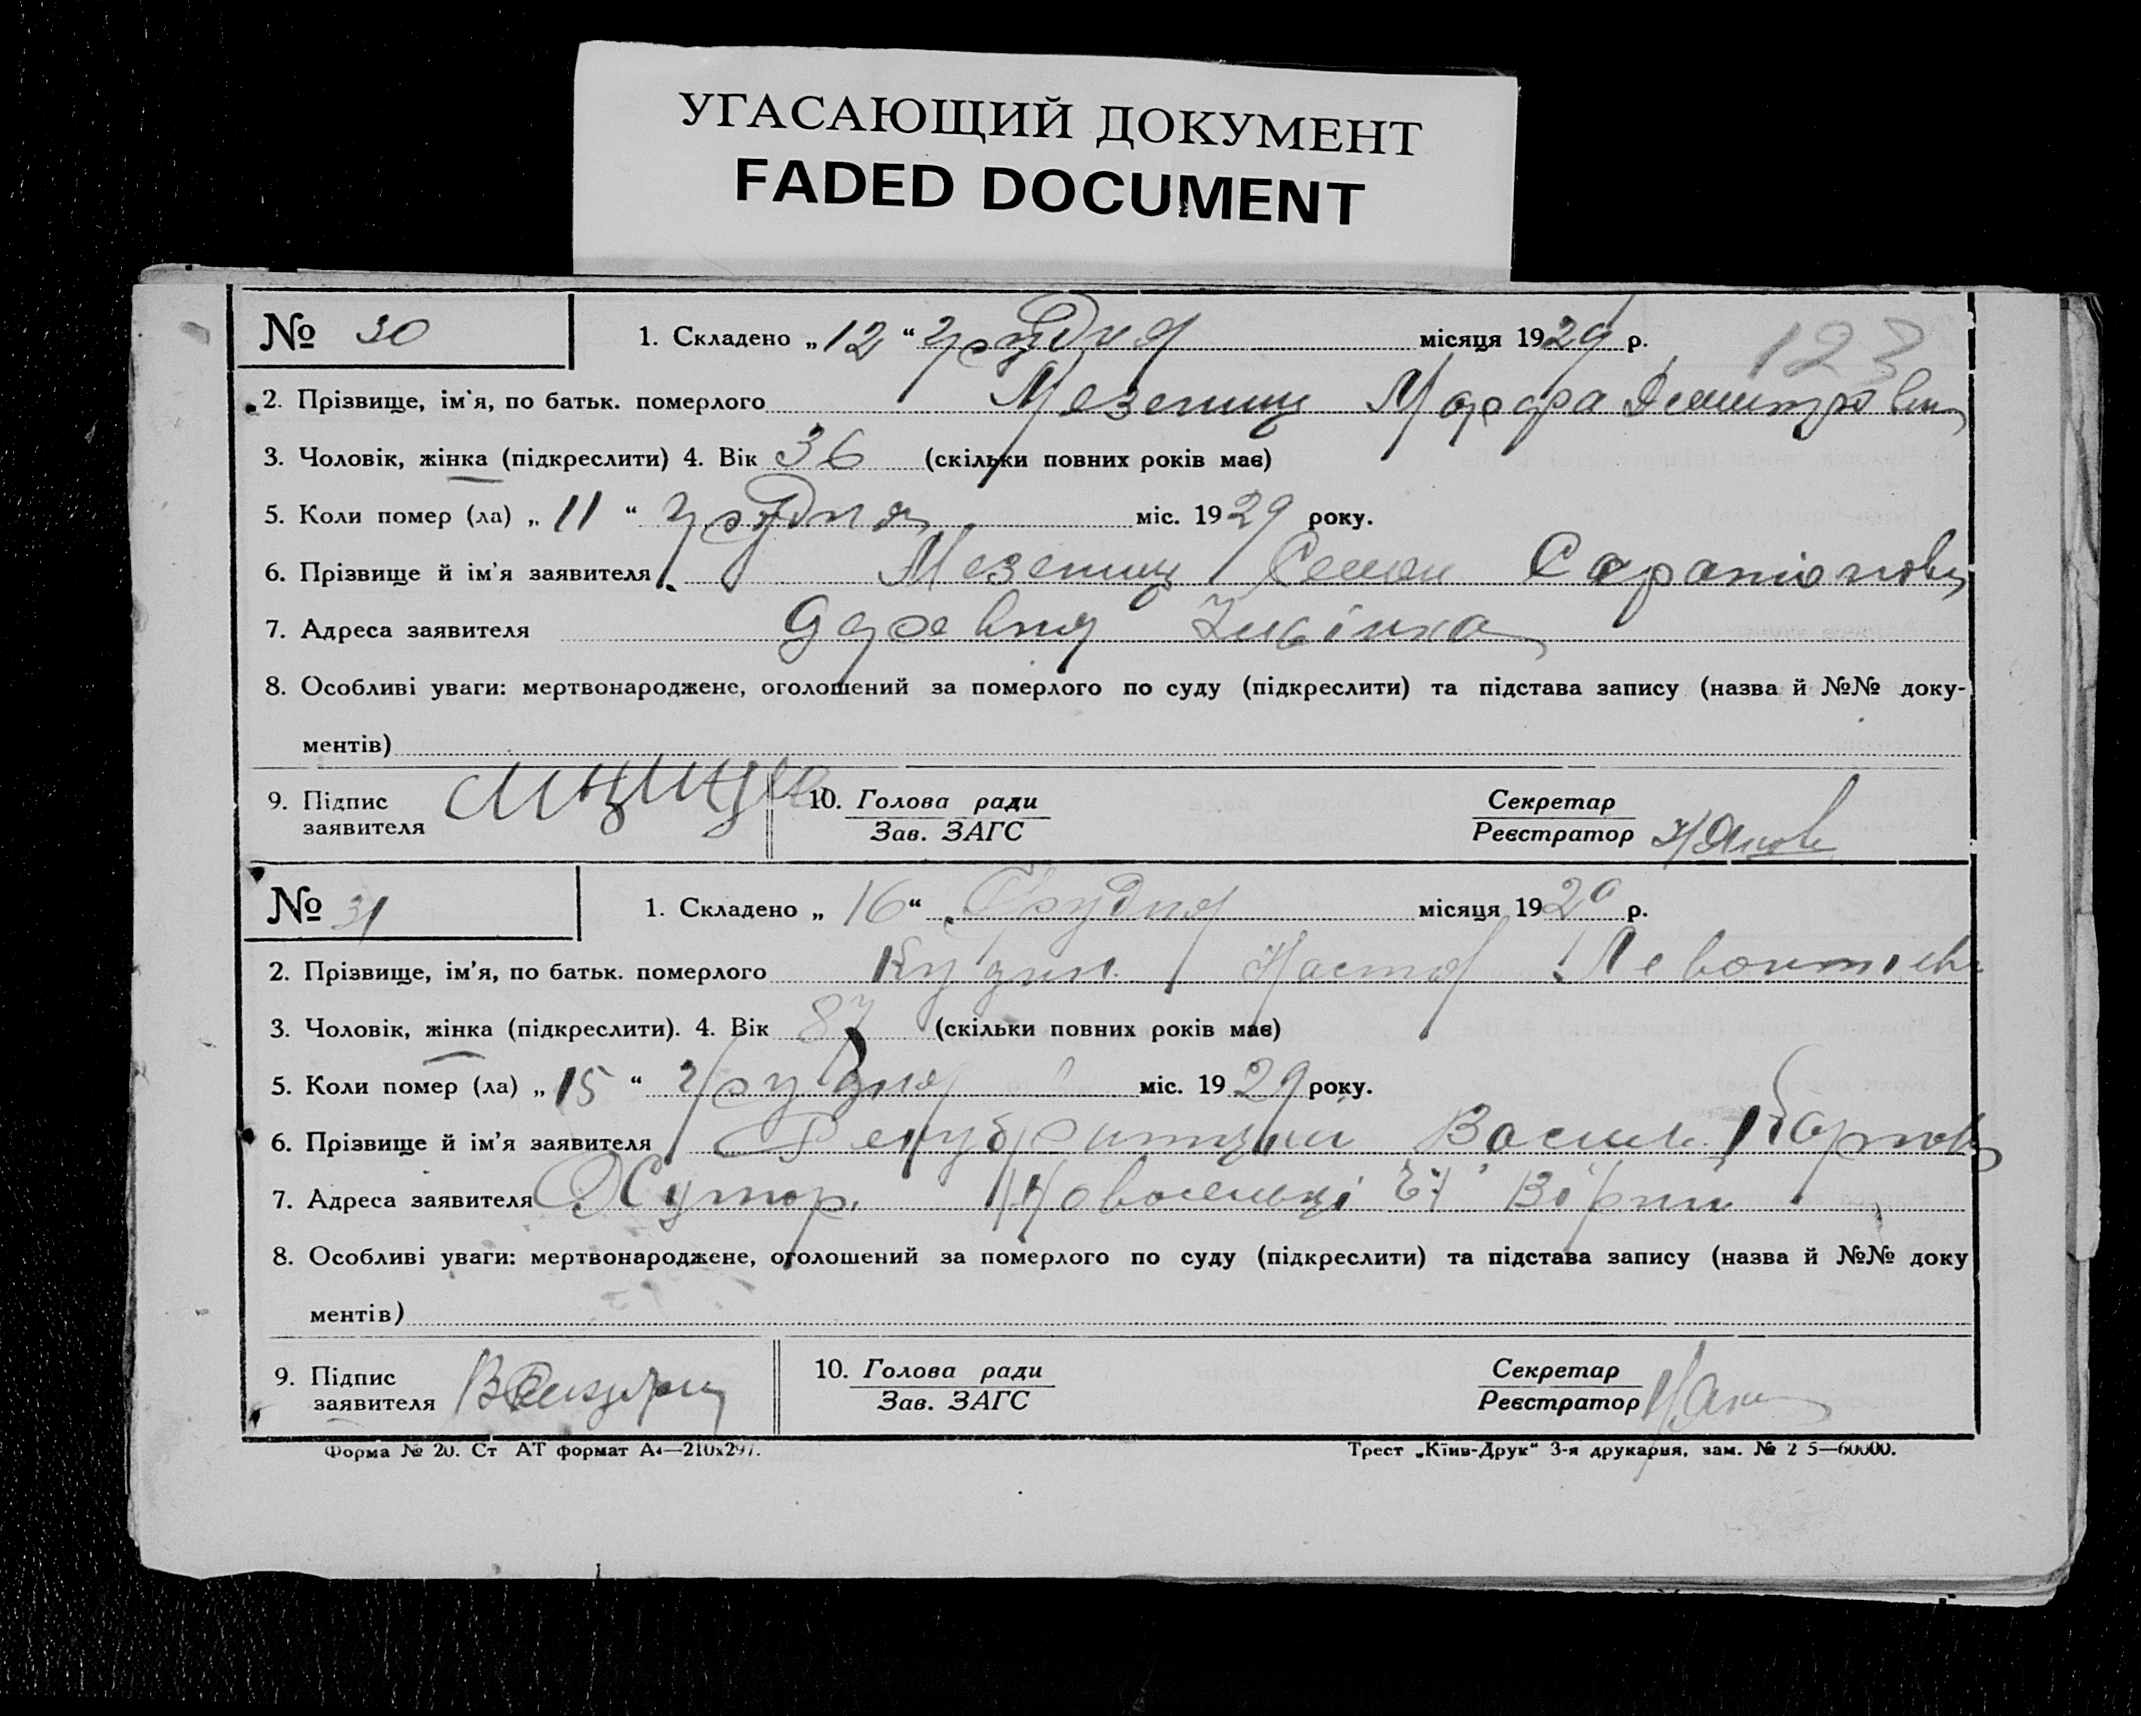 УГАСАЮЩИЙ ДОКУМЕНТ
FADED DOCUMENT
№ 30 1. Складено „12“ грудня місяця 1929 р. 123
2. Прізвище, ім'я, по батьк. померлого Мезенец Марфа Демитровн
3. Чоловік, жінка (підкреслити) 4. Вік 36 (скільки повних років має)
5. Коли помер (ла) „11“ грудня міс. 1929 року.
6. Прізвище й ім'я заявителя Мезенец Семен
7. Адреса заявителя деревня
8. Особливі уваги: мертвонароджене, оголошений за померлого по суду (підкреслити) та підстава запису (назва й №№ доку-
ментів)
9. Підпис 10. Голова ради Секретар
заявителя Зав. ЗАГС Реєстратор
№ 31 1. Складено „16“ Грудня місяця 1929 р.
2. Прізвище, ім'я, по батьк. померлого Настя
3. Чоловік, жінка (підкреслити). 4. Вік 87 (скільки повних років має)
5. Коли помер (ла) „15“ грудня міс. 1929 року.
6. Прізвище й ім'я заявителя Васил
7. Адреса заявителя Хутор. Новоселиці
8. Особливі уваги: мертвонароджене, оголошений за померлого по суду (підкреслити) та підстава запису (назва й №№ доку
ментів)
9. Підпис 10. Голова ради Секретар
заявителя Зав. ЗАГС Реєстратор
Форма № 20. Ст АТ формат А4—210х297.
Трест „Київ-Друк“ 3-я друкарня, зам. № 2 5—60000.